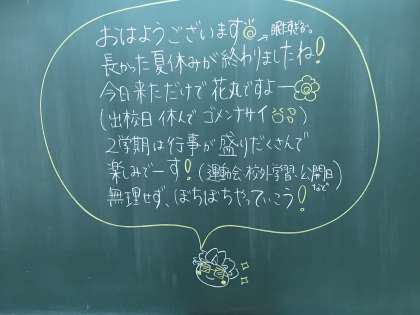 おはようございます→眠すぎる。
長かった夏休みが終わりましたね!
今日来ただけで花丸ですよー
(出校日休んでゴメンナサイ)
2学期は行事が盛りだくさんで
楽しみでーす!(運動会・校外学習・公開日など)
無理せず、ぼちぼちやっていこう!